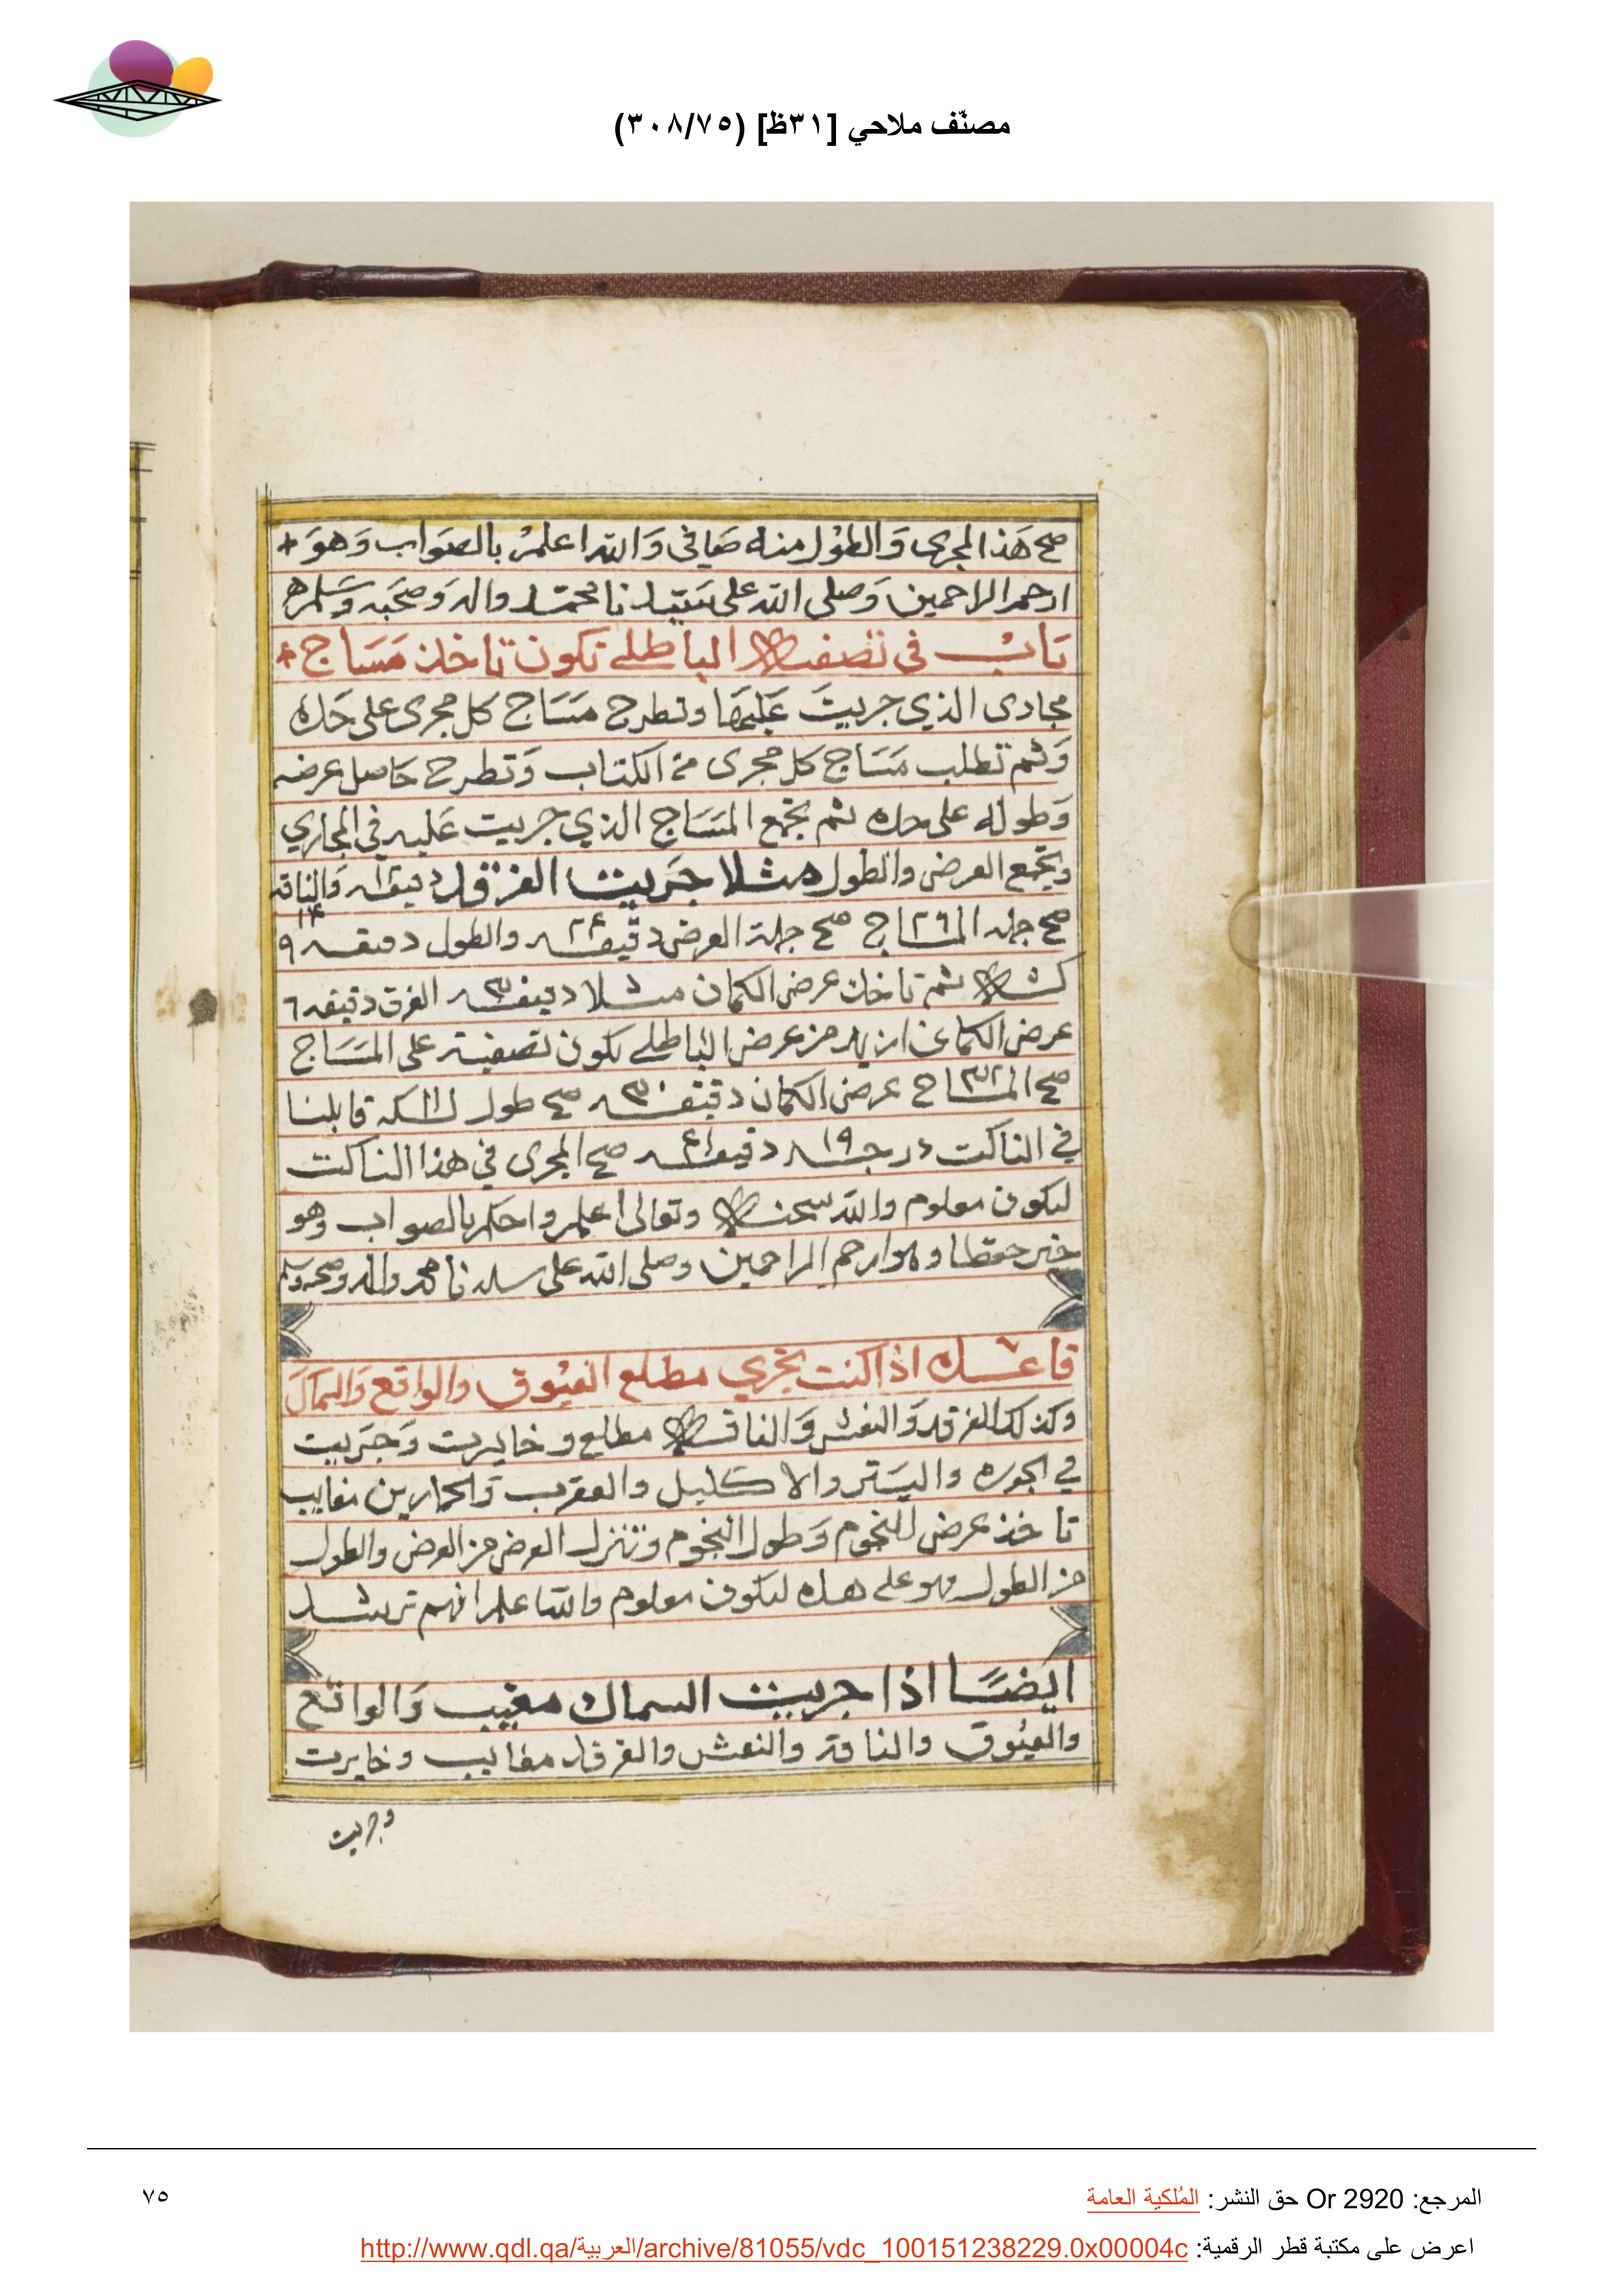 مصنّف ملاحي [٣١ظ] (٣٠٨/٧٥)
صح هَذا المجرى وَالطوْل منه صَافي وَالله اعلمْ بالصَواب وَهوَ
ارحم الراحمين وَصلى الله على سَيّدنا محمّد واله وَصحَبه وَسَلم
بَابْ في تصفية الباطلي تكون تاخذ مَسَاج
مجارى الذي جريتَ عَليهَا وتطرح مسَاج كل مجرى على حَده
وَثم تطلب مَسَاج كل مجرى من الكتاب وَتطرح حَاصل عرضه
وَطوله على حده ثم تجمع المسَاج الذي جريت عَليه في المجاري
وتجمع العرض والطول مثلا جَريت الفرقد دقيقه والناقه
صح جمله المساج ٢٦ صح جملة العرض دقيقه ٢٤ والطول دقيقه ٩
ثم تاخذ عرض الكمان مثلا دقيقه ٣٠ الفرق دقيقه ٦
عرض الكمان ازيد من عرض الباطلي يكون تصفيته على المسَاج
صح المساج ٣٢ عرض الكمان دقيقه ٣٠ صح طول قابلنا
في الناكت درجه ١٩ دقيقه ٤١ صح المجرى في هذا الناكت
ليكون معلوم والله سبحنه وتعالى اعلم واحكم بالصواب وهو
خير حفظا وهوارحم الراحمين وصلى الله على سيدنا محمد واله وصحبه وسلم
قاعده اذا كنت تجري مطلع العيوق والواقع وَالسماك
وكذلك الفرقد وَالنعش وَالناقه مطلع وخايرت وَجَريت
في الجوزه واليسَتر والاكليل والعقرب وَالحمارين مغايب
تاخذ عرض للنجوم وَطول النجوم وتنزل العرض من العرض والطول
من الطول وهو على هده ليكون معلوم والله اعلم افهم ترشد
ايضًا اذا جريت السماك مغيب وَالواقع
والعيُوق والناقة والنعش والفرقد مغايب وخايرت
وجريت
المرجع: Or 2920 حق النشر: المُلكية العامة
٧٥
اعرض على مكتبة قطر الرقمية: http://www.qdl.qa/العربية/archive/81055/vdc_100151238229.0x00004c